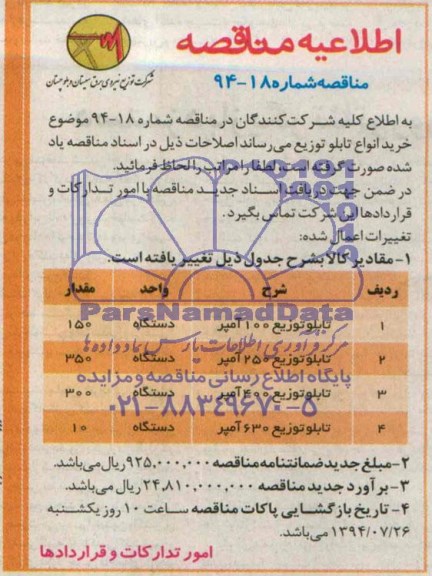 اطلاعیه مناقصه
شرکت توزیع نیروی برق سیستان و بلوچستان
مناقصه شماره ۱۸-۹۴
به اطلاع کلیه شرکت کنندگان در مناقصه شماره ۱۸-۹۴ موضوع
خرید انواع تابلو توزیع می رساند اصلاحات ذیل در اسناد مناقصه یاد
شده صورت گرفته است، لطفا مراتب را لحاظ فرمائید.
در ضمن جهت دریافت اسناد جدید مناقصه با امور تدارکات و
قراردادها این شرکت تماس بگیرد.
تغییرات اعمال شده:
۱- مقادیر کالا بشرح جدول ذیل تغییر یافته است.
ردیف شرح واحد مقدار
۱ تابلو توزیع ۱۰۰ آمپر دستگاه ۱۵۰
ParsNamadData
مرکز فرآوری اطلاعات پارس نماد داده ها
۲ تابلو توزیع ۲۵۰ آمپر دستگاه ۳۵۰
پایگاه اطلاع رسانی مناقصه و مزایده
۳ تابلو توزیع ۴۰۰ آمپر دستگاه ۳۰۰
۰۲۱-۸۸۳۴۹۶۷۰-۵
۴ تابلو توزیع ۶۳۰ آمپر دستگاه ۱۰
۲- مبلغ جدید ضمانتنامه مناقصه ۹۲۵,۰۰۰,۰۰۰ ریال می باشد.
۳- برآورد جدید مناقصه ۲۴,۸۱۰,۰۰۰,۰۰۰ ریال می باشد.
۴- تاریخ بازگشایی پاکات مناقصه ساعت ۱۰ روز یکشنبه
۱۳۹۴/۰۷/۲۶ می باشد.
امور تدارکات و قراردادها